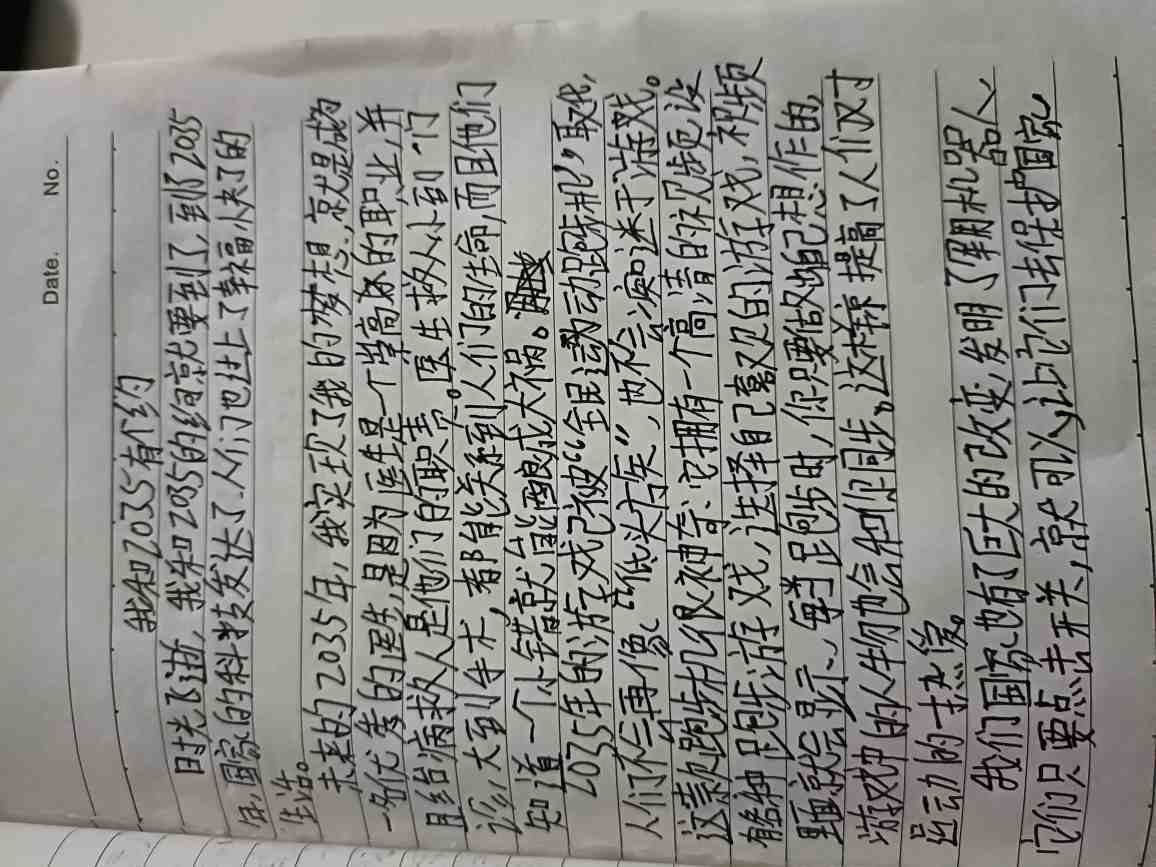 Date. No.
我和2035有个约
时光飞逝,我和2035的约就要到了,到了2035
年,国家的科技发达了,人们也过上了幸福快乐的
生活。
未来的2035年,我实现了我的梦想,就是成为
一名优秀的医生,是因为医生是一个崇高的职业,并
且给病救人是他们的职责。医生救人小到门
诊,大到手术,都能关系到人们的生命,而且他们
知道一个小错就能酿成大祸。
2035年的游戏已被“全民运动跑步机”取代,
人们不会再像“低头族”,也不会沉迷于游戏。
这款跑步机很神奇:它拥有一个高清的视频,设
能种跑步游戏,选择自己喜欢的游戏,视频
里面就会显示、每当跑步时,你只要做出自己想作的,
游戏中的人物也会和你同步。这样提高了人们对
运动的热爱。
我们国家也有了巨大的改变,发明了军用机器人,
它们只要点击开关,就可以让它们去保护国家